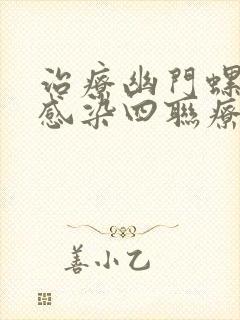 治療幽門螺
感染四聯療
善小乙